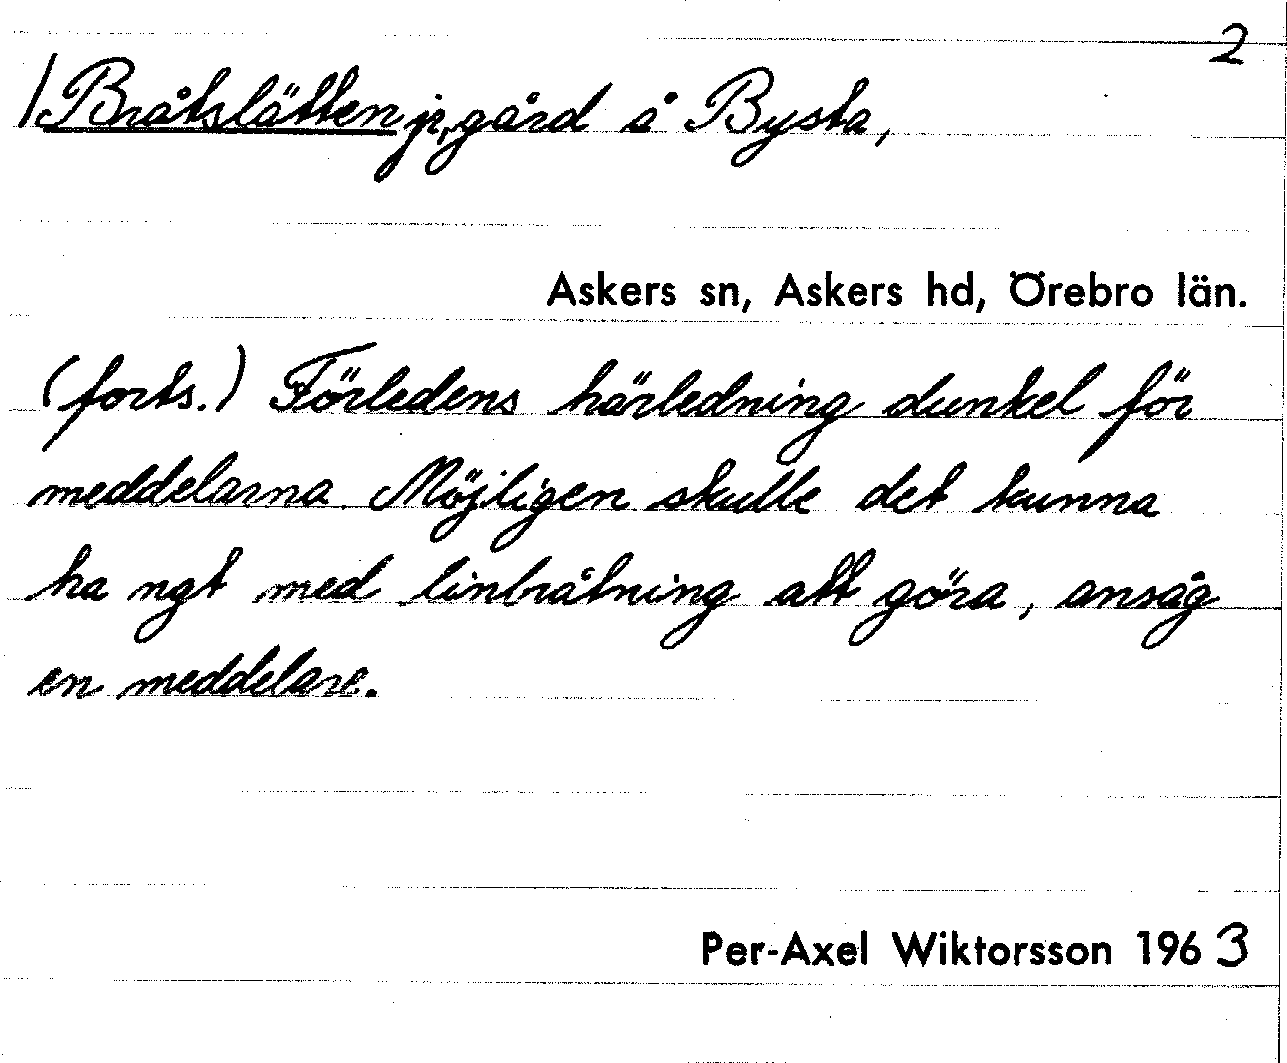 2
/Bråtslätten jr, gård å Bysta,
Askers sn, Askers hd, Örebro län.
(forts.) Förledens härledning dunkel för
meddelarna. Möjligen skulle det kunna
ha ngt med linbråtning att göra, ansåg
en meddelare.
Per-Axel Wiktorsson 1963